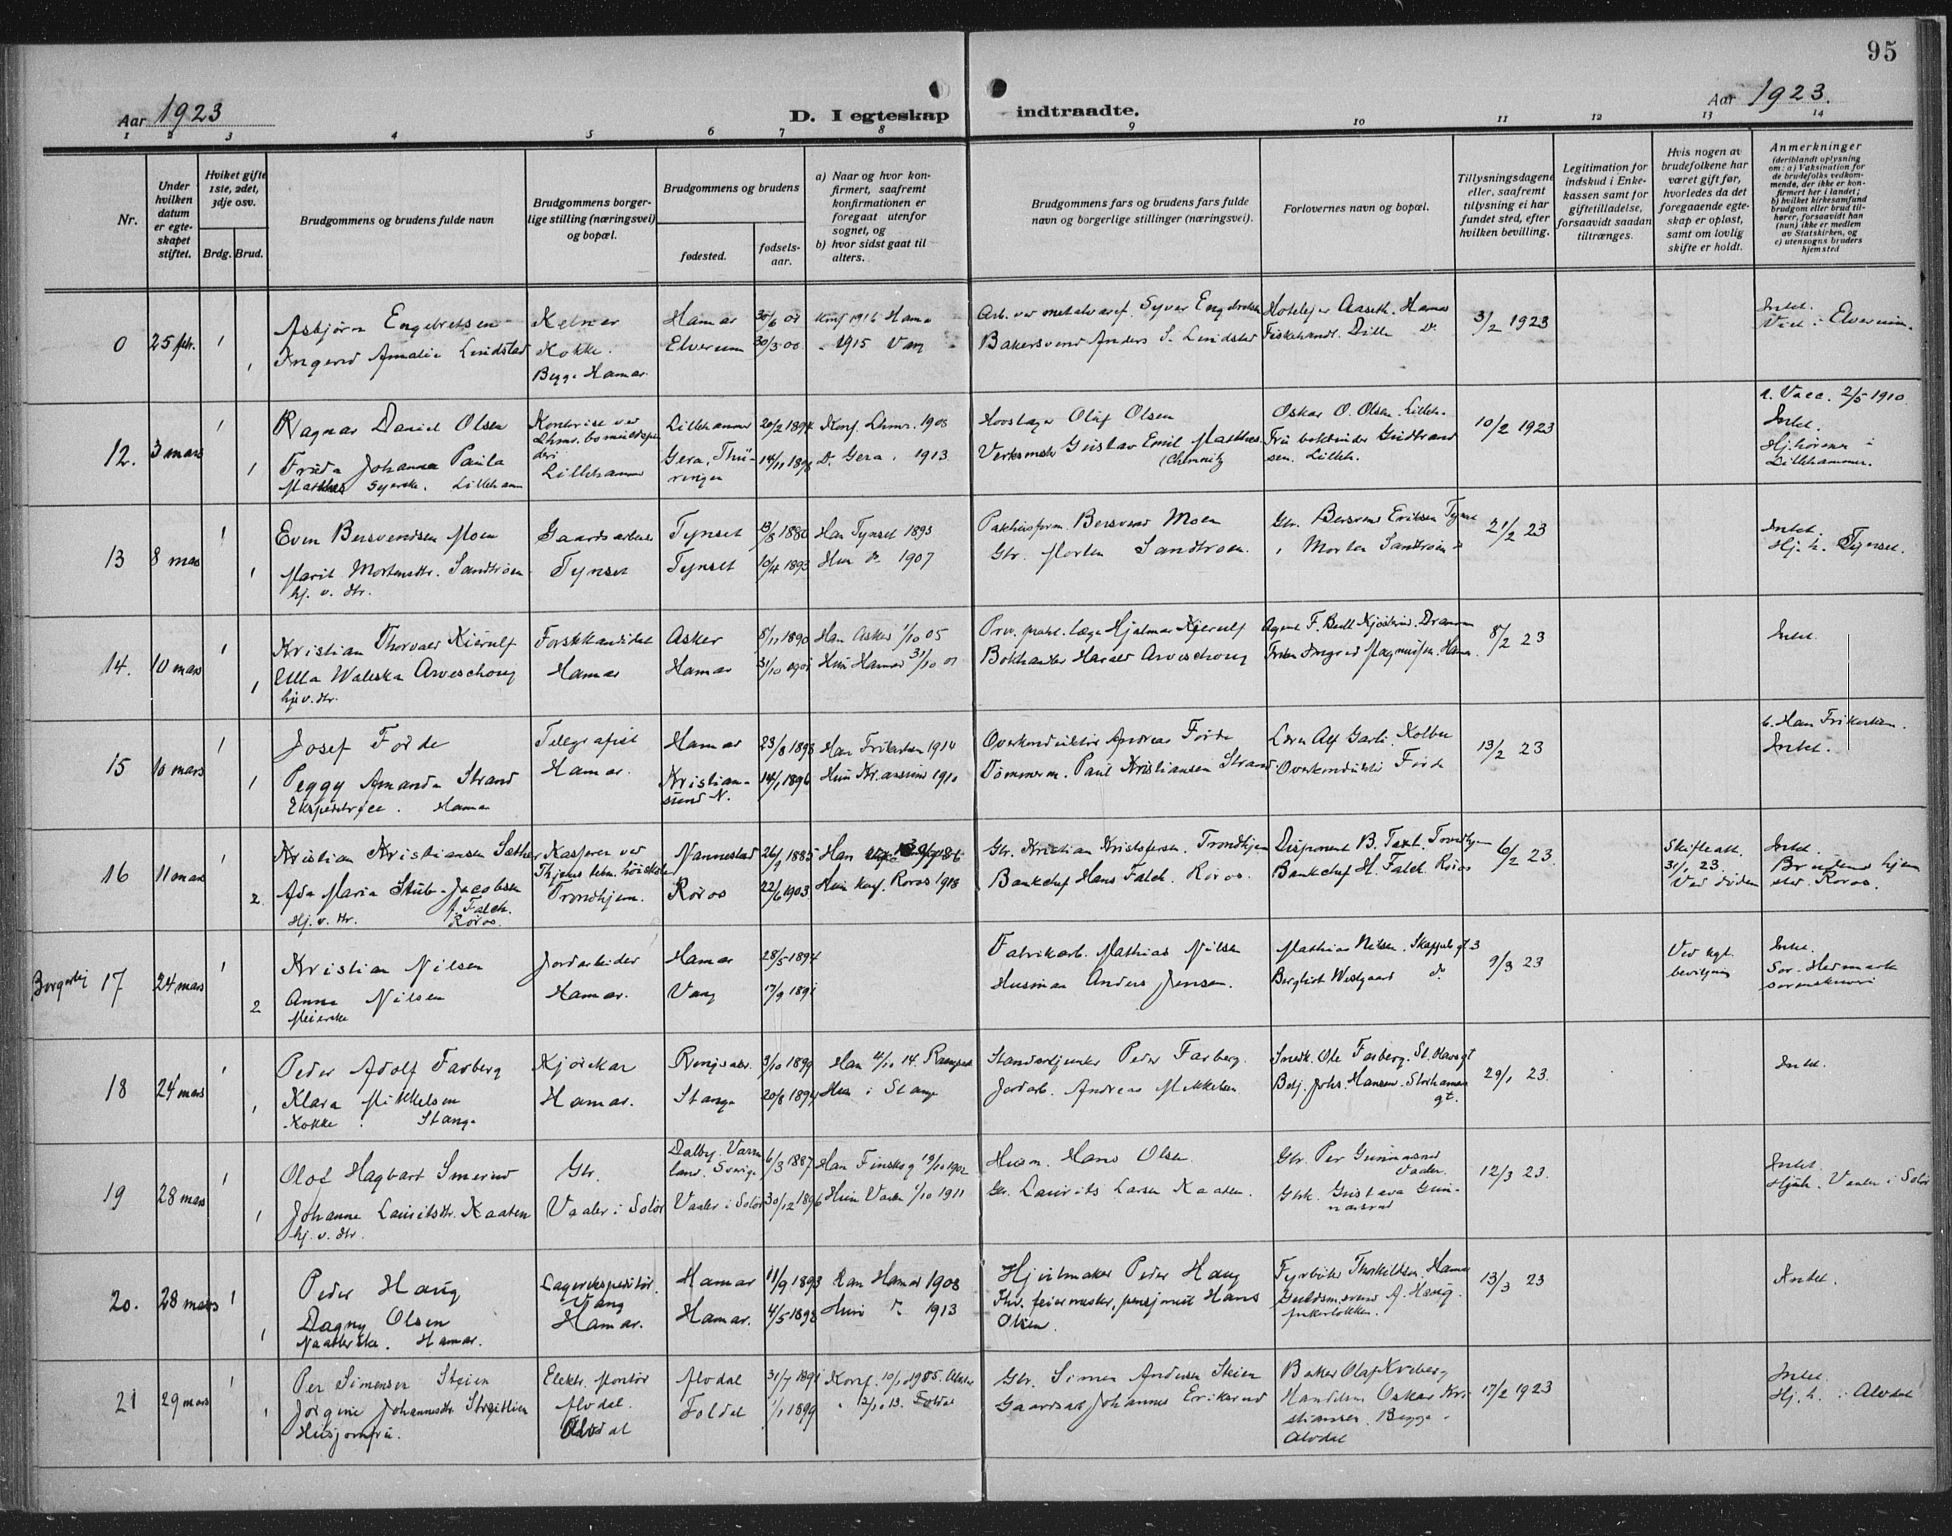 95
Aar 1923
D. I egteskap indtraadte.
Aar 1923.
1 2 3 4 5 6 7 8 9 10 11 12 13 14
Nr.
Under hvilken datum er egteskapet stiftet.
Hvilket gifte 1ste, 2det, 3dje osv.
Brdg. Brud.
Brudgommens og brudens fulde navn
Brudgommens borgerlige stilling (næringsvei) og bopæl.
Brudgommens og brudens
fødested.
fødselsaar.
a) Naar og hvor konfirmert, saafremt konfirmationen er foregaat utenfor sognet, og
b) hvor sidst gaat til alters.
Brudgommens fars og brudens fars fulde navn og borgerlige stillinger (næringsvei).
Forlovernes navn og bopæl.
Tillysningsdagene eller, saafremt tillysning ei har fundet sted, efter hvilken bevilling.
Legitimation for indskud i Enkekassen samt for giftetilladelse, forsaavidt saadan tiltrænges.
Hvis nogen av brudefolkene har været gift før, hvorledes da det foregaaende egteskap er opløst, samt om lovlig skifte er holdt.
Anmerkninger
(deriblandt oplysning om: a) Vaksination for de brudefolks vedkommende, der ikke er konfirmert her i landet; b) hvilket kirkesamfund brudgom eller brud tilhører, forsaavidt han (hun) ikke er medlem av Statskirken, og c) utensogns bruders hjemsted
0 25 feb. 1 Asbjørn Engebretsen Kelner Hamar Konf 1916 Hamar Syver Engebretsen Hotelejer Aaseth. Hamar 3/2 1923 Intet.
1 Ingerid Amalie Lindstad Kokke. Elverum 30/3 00 1915 Vang Bakersvend Anders S. Lindstad Fiskehandl. Lille Do Elverum.
Begge Hamar.
12. 3 mars 1 Ragnar Daniel Olsen Lillehammer 20/2 1894 Konf. Lhmr. 1908 Oluf Olsen Oskar O. Olsen. Lilleh. 10/2 1923 a. Vacc. 2/5 1910
1 Frida Johanna Paula Gera, Thüringen 1898 Do Gera. 1913. Gustav Emil Matthes (Chemnitz Intet.
Matthes Syerske. Lilleham Lillehammer Lillehammer.
13 8 mars 1 Even Bersvendsen Moen Gaardsarbeider Tynset 1880 Han Tynset 1895 Bersvend Moen Gbr. Bersvend Eriksen Tynset 21/2 23 Intet
1 Marit Mortensdtr. Sandtrøen Tynset Tynset 10/4 1893 Hun Do 1907 Gbr. Morten Sandtrøen. Morten Sandtrøen Hj. h. Tynset.
hj. v. dtr.
14. 10 mars 1 Kristian Thorvald Kierulf Forstkandidat Asker 5/11 1890 Han Asker 1/10 05 Hjalmar Kierulf Agent F. Bull 8/2 23 Intet
1 Ulla Waleska Arveschoug Hamar Hamar 31/10 Hun Hamar Bokhandler Harald Arveschoug Frøken Ingrid Magnussen. Hamar
hj. v. dtr.
15 10 mars 1 Josef Førde Telegrafist Hamar 23/8 1898 Han Frikirken 1914 Overkonduktør Andreas Førde Alf Garli. Kolbu 13/2 23 b. Han Frikirken.
1 Peggy Amanda Strand Hamar. Kristiansund N. 14/1 1896 Hun 1910 Tømmerm. Paul Kristiansen Strand Overkonduktør Førde Intet.
Ekspeditrice. Hamar
16 11 mars 1 Kristian Kristiansen Sæther Kasserer ved Nannestad 26/9 1885 Han Gbr. Kristian Kristofersen. Trondhjem Disponent B. 6/2 23. Skifteatt. 31/1 23. Ved døden Intet.
2. Ada Maria Stub-Jacobsen f. Falch. Røros Thjems tekn. høiskole Trondhjem. Røros 22/6 1903 Hun konf. Røros 1918 Bankchef Hans Falch. Røros. Bankchef H. Falch. Røros Brudens hjemsted Røros.
Hj. v. dtr.
Borgerlig 17 24 mars 1 Kristian Nilsen Jordarbeider Hamar 28/5 1894 Fabrikarb. Mathias Nilsen Mathias Nilsen. Skappels gt. 3 9/3 23 Ved kgl. bevilgning Intet.
2 Anna Nilsen Hamar. Vang 17/9 1891 Husman Anders Jensen. Bergliot Westgaard do Sør-Hedmark sorenskriveri
Meierske
18 24 mars 1 Peder Adolf Farberg Kjørekar Ringsaker. 3/10 1899 Han 4/10 14. Peder Farberg. Snedk. Ole Farberg. St. Olavs gt 29/1 23. Intet.
1 Klara Mikkelsen Hamar. Stange 20/8 1894 Hun i Stange Jordarb. Andreas Mikkelsen Betj. Johs. Hansen. Storhamar gt.
Kokke. Stange
19 28 mars 1 Olof Hagbart Smerud Gbr. Dalby. Värmland. Sverige 6/3 1887 Han Finskog 19/10 1902 Hans Olsen Gbr. Per Gunnarsrud Vaaler. 12/3 23. Intet.
1 Johanne Lauritsdtr. Kaaten Vaaler i Solør Vaaler i Solør 30/12 1896 Hun Vaaler 1/10 1911 Gbr. Laurits Larsen Kaaten. Gbrk. Gustava Gunnarsrud Hjh. Vaaler i Solør
hj. v. dtr.
20. 28 mars 1 Peder Haug Lagerekspeditør. Vang Hamar 11/9 1893 Han Hamar 1908 Hjulmaker Peder Haug Fyrbøter Thorkildsen. Hamar 13/3 23 Intet.
1 Dagny Olsen Hamar. Hamar. 4/5 1898 Hun Do 1913 Fhv. feiermester, pensjonert Hans Olsen. Guldsm.svend A. Haug.
Naatlerske. Hamar.
21 29 mars 1 Per Simensen Steien Elektr. Montør Alvdal 31/7 1891 Konf. 10/1 1905. Alvdal Gbr. Simen Andersen Steien Baker Olaf Kveberg 17/2 1923 Intet.
1 Jørgine Johannesdtr. Streitlien Alvdal. Foldal 1/1 1899 Foldal Johannes Eriksrud Handelsm. Oskar Kristiansen. Begge Alvdal Hj. h. i Alvdal
Husjomfru. Alvdal